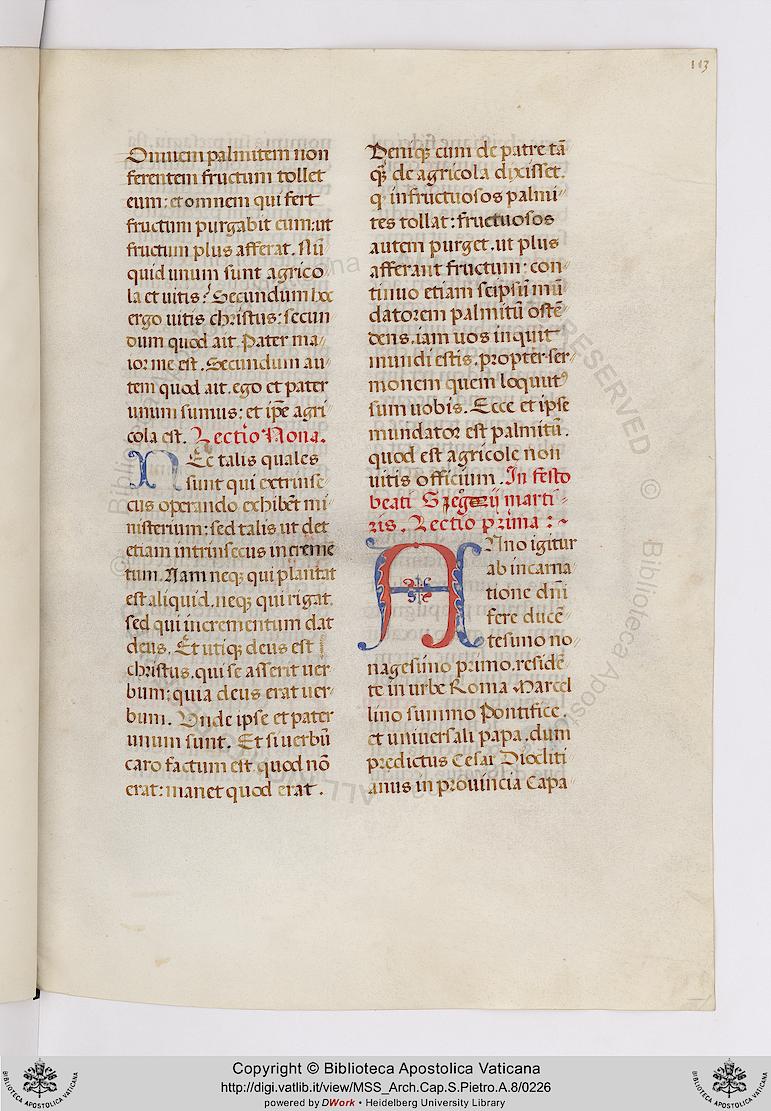 113
Omnem palmitem non
ferentem fructum tollet
eum: et omnem qui fert
fructum purgabit eum: ut
fructum plus afferat. Nū
quid unum sunt agrico
la et uitis? Secundum hoc
ergo uitis christus: secun
dum quod ait. Pater ma
ior me est. Secundum au
tem quod ait. ego et pater
unum sumus: et ip̄e agri
cola est. Lectio Nona.
Nec talis quales
sunt qui extrinse
cus operando exhibēt mi
nisterium: sed talis ut det
etiam intrinsecus increme
tum. Nam neq3 qui plantat
est aliquid. neq3 qui rigat.
sed qui incrementum dat
deus. Et utiq3 deus est
christus. qui se asserit uer
bum: quia deus erat uer
bum. Unde ipse et pater
unum sunt. Et si uerbū
caro factum est. quod nō
erat: manet quod erat.
Deniq3 cum de patre tā
q̄3 de agricola dixisset.
q infructuosos palmi
tes tollat: fructuosos
autem purget. ut plus
afferant fructum: con
tinuo etiam seipsū mū
datorem palmitū ostē
dens. iam uos inquit
mundi estis. propter ser
monem quem loquut9
sum uobis. Ecce et ipse
mundator est palmitū.
quod est agricole non
uitis officium. In festo
beati Gregorij marti
ris. Lectio prima:~
Anno igitur
ab incarna
tione dn̄i
fere ducē
tesimo no
nagesimo primo. residē
te in urbe Roma Marcel
lino summo Pontifice.
et uniuersali papa. dum
predictus Cesar Diocliti
anus in prouincia Capa
Copyright © Biblioteca Apostolica Vaticana
http://digi.vatlib.it/view/MSS_Arch.Cap.S.Pietro.A.8/0226
powered by DWork • Heidelberg University Library
BIBLIOTECA APOSTOLICA VATICANA
BIBLIOTECA APOSTOLICA VATICANA